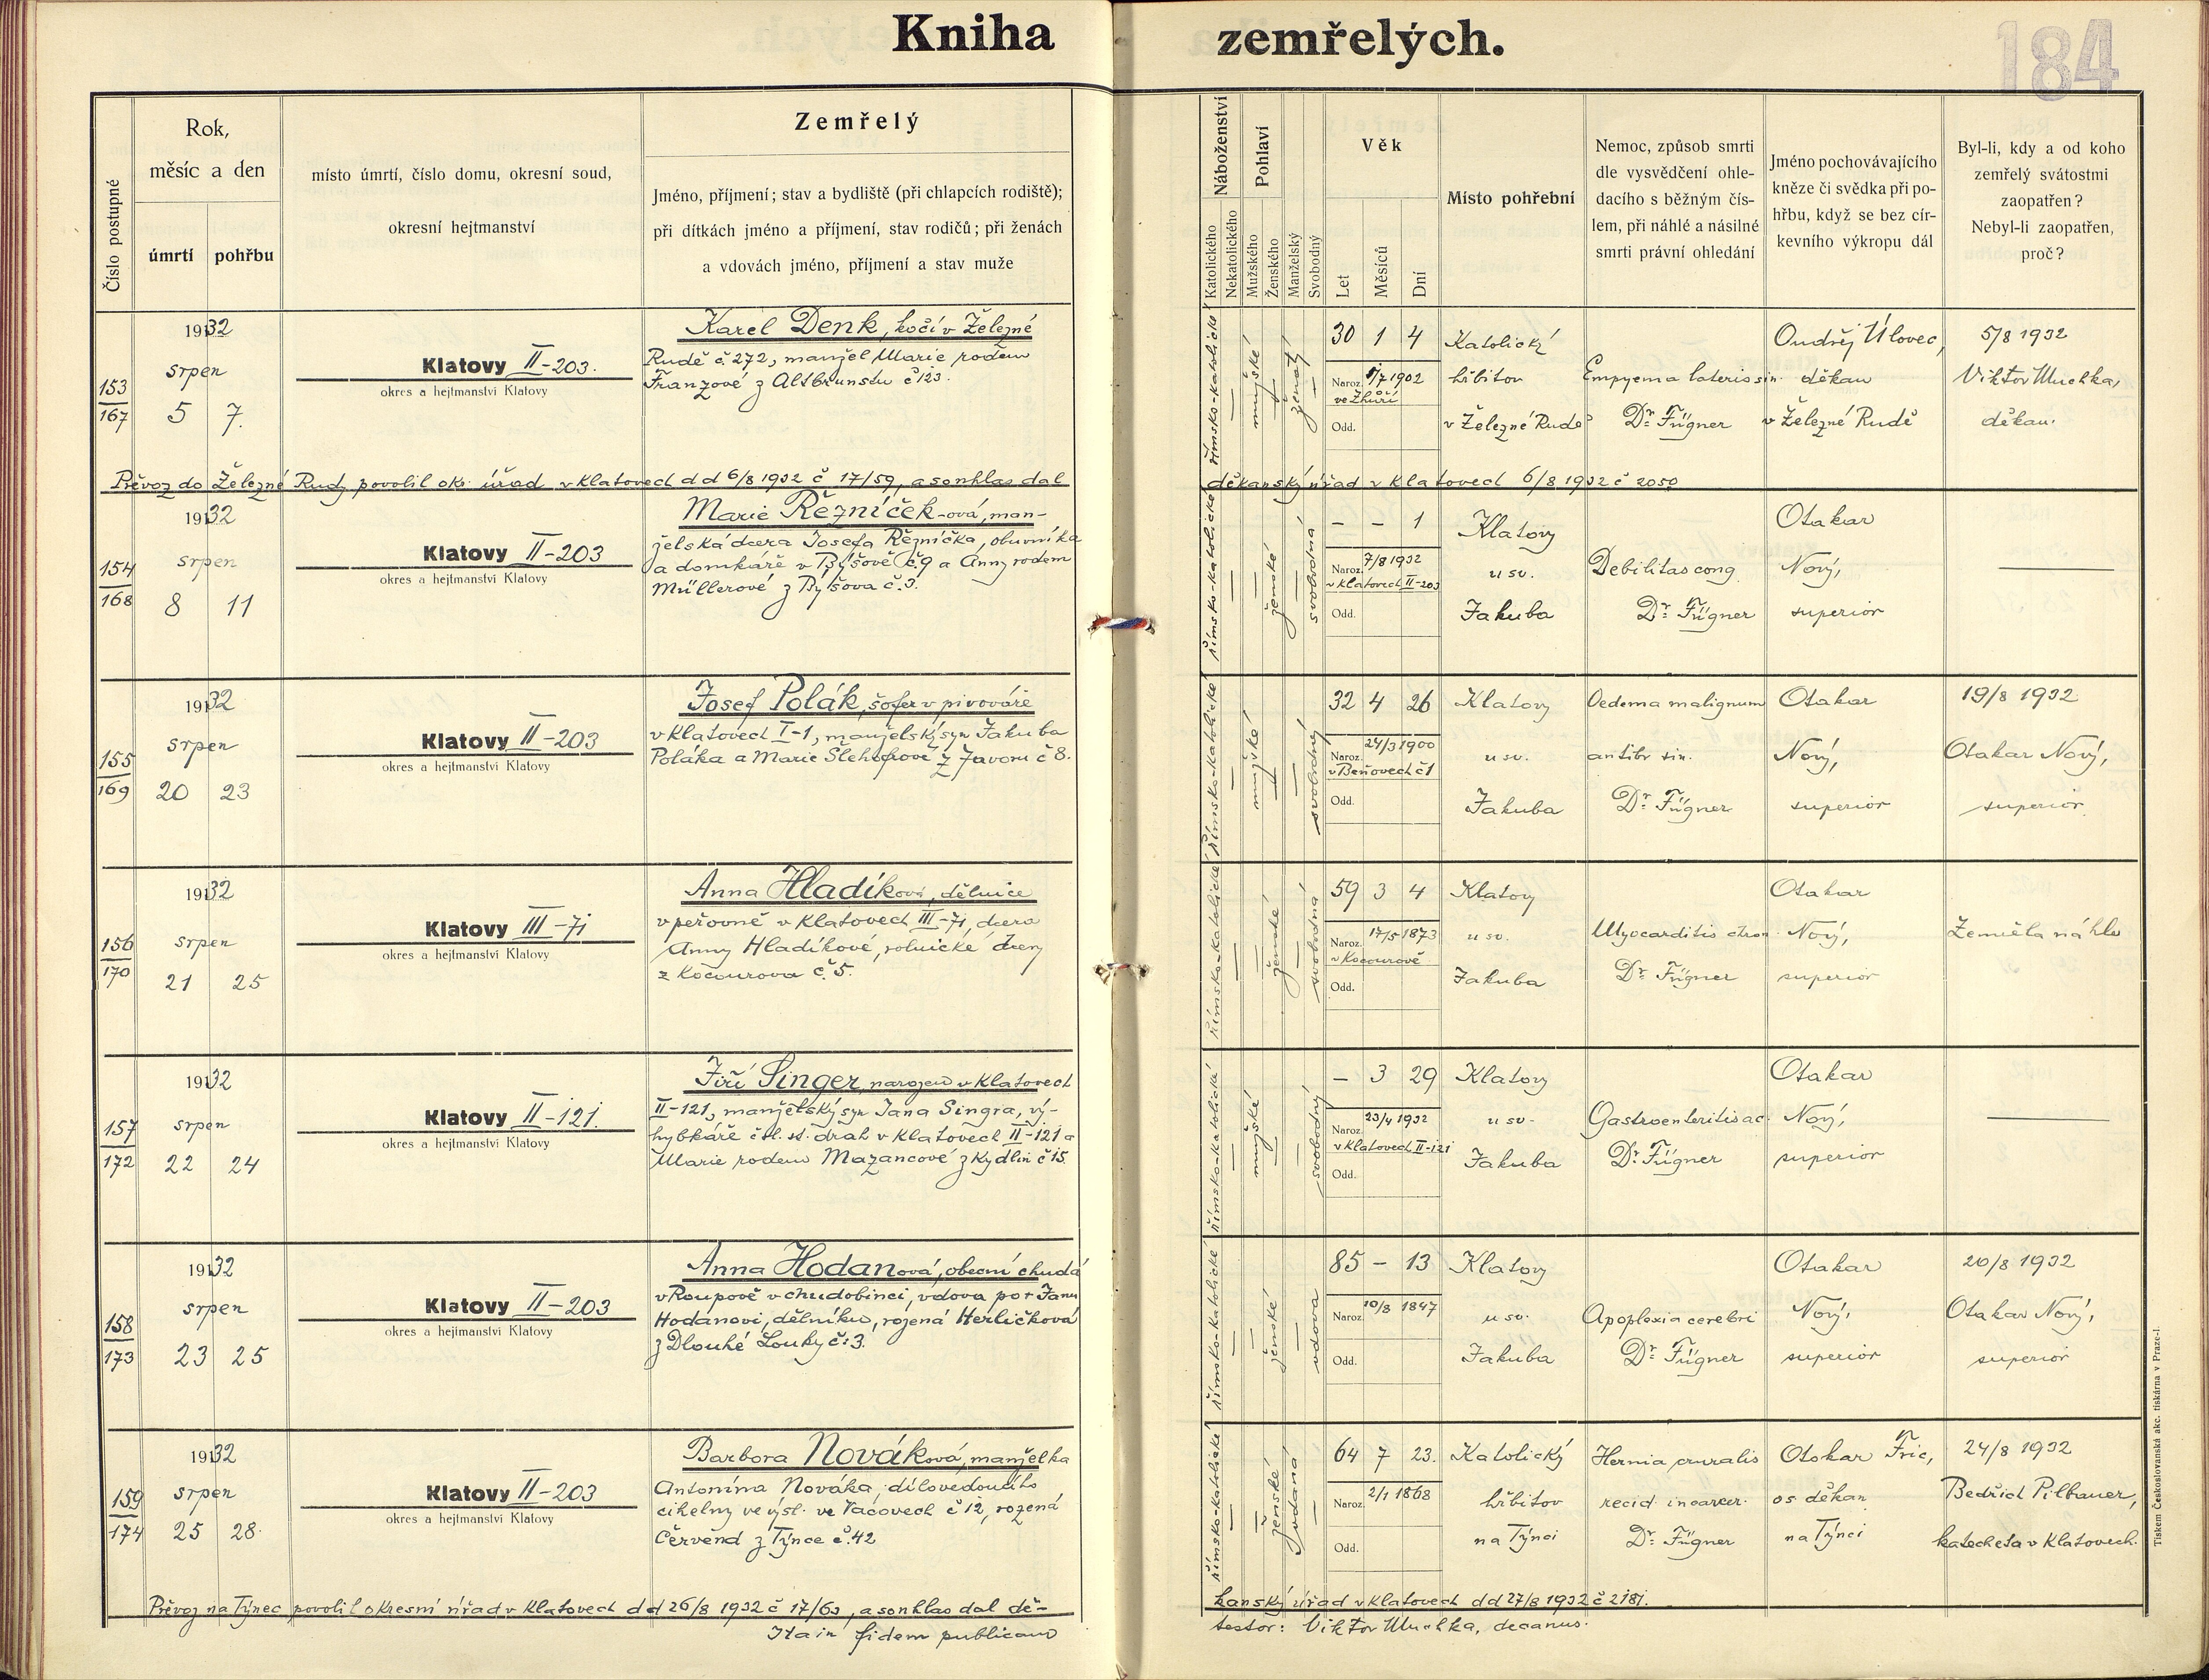 Kniha zemřelých.
184
Číslo postupné
Rok,
měsíc a den
úmrtí
pohřbu
místo úmrtí, číslo domu, okresní soud,
okresní hejtmanství
Zemřelý
Jméno, příjmení; stav a bydliště (při chlapcích rodiště);
při dítkách jméno a příjmení, stav rodičů; při ženách
a vdovách jméno, příjmení a stav muže
Náboženství
Katolického
Nekatolického
Pohlaví
Mužského
Ženského
Manželský
Svobodný
Věk
Let
Měsíců
Dní
Místo pohřební
Nemoc, způsob smrti
dle vysvědčení ohle-
dacího s běžným čís-
lem, při náhlé a násilné
smrti právní ohledání
Jméno pochovávajícího
kněze či svědka při po-
hřbu, když se bez cír-
kevního výkropu dál
Byl-li, kdy a od koho
zemřelý svátostmi
zaopatřen?
Nebyl-li zaopatřen,
proč?
153
167
1932
srpen
5 7.
Klatovy II-203.
okres a hejtmanství Klatovy
Karel Denk, kočí v Železné
Rudě č 272, manžel Marie rodem
Franzové z Altbrunstu č 123.
římsko-katolické
mužské
ženatý
30 1 4
Naroz. 1/7 1902
ve Zhůří
Odd.
Katolický
hřbitov
v Železné Rudě
Empyema lateris sin.
Dr. Fügner
Ondřej Úlovec,
děkan
v Železné Rudě
5/8 1932
Viktor Muchka,
děkan.
Převoz do Železné Rudy povolil okr. úřad v Klatovech d d 6/8 1932 č 17/59, a souhlas dal
děkanský úřad v Klatovech 6/8 1932 č 2050
154
168
1932
srpen
8 11
Klatovy II-203
okres a hejtmanství Klatovy
Marie Řezníček-ová, man-
želská dcera Josefa Řezníčka, obuvníka
a domkáře v Býšově č.9 a Anny rodem
Müllerové z Býšova č.3.
římsko-katolické
ženské
svobodná
- - 1
Naroz. 7/8 1932
v Klatovech II-203
Odd.
Klatovy
u sv.
Jakuba
Debilitas cong.
Dr. Fügner
Otakar
Nový,
superior
155
169
1932
srpen
20 23
Klatovy II-203
okres a hejtmanství Klatovy
Josef Polák, šofer v pivováře
v Klatovech I-1, manželský syn Jakuba
Poláka a Marie Šlehofrové z Javoru č 8.
římsko-katolické
mužské
svobodný
32 4 26
Naroz. 24/3 1900
v Beňovech č 1
Odd.
Klatovy
u sv.
Jakuba
Oedema malignum
antibr sin.
Dr. Fügner
Otakar
Nový,
superior
19/8 1932
Otakar Nový,
superior.
156
170
1932
srpen
21 25
Klatovy III-71
okres a hejtmanství Klatovy
Anna Hladíková, dělnice
v peřovně v Klatovech III-71, dcera
Anny Hladíkové, rolnické dcery
z Kocourova č.5.
římsko-katolické
ženské
svobodná
59 3 4
Naroz. 17/5 1873
v Kocourově
Odd.
Klatovy
u sv.
Jakuba
Myocarditis chron
Dr. Fügner
Otakar
Nový,
superior
Zemřela náhle
157
172
1932
srpen
22 24
Klatovy II-121.
okres a hejtmanství Klatovy
Jiří Singer, narozen v Klatovech
II-121, manželský syn Jana Singra, vý-
hybkáře čsl. st. drah v Klatovech II-121 a
Marie rodem Mazancové z Kydlin č 15.
římsko-katolické
mužské
svobodný
- 3 29
Naroz. 23/4 1932
v Klatovech II-121
Odd.
Klatovy
u sv.
Jakuba
Gastroenteritis ac.
Dr. Fügner
Otakar
Nový,
superior
158
173
1932
srpen
23 25
Klatovy II-203
okres a hejtmanství Klatovy
Anna Hodanová, obecní chudá
v Roupově v chudobinci, vdova po † Janu
Hodanovi, dělníku, rozená Herličková
z Dlouhé Louky č. 3.
římsko-katolické
ženské
vdova
85 - 13
Naroz. 10/8 1847
Odd.
Klatovy
u sv.
Jakuba
Apoplexia cerebri
Dr. Fügner
Otakar
Nový,
superior
20/8 1932
Otakar Nový,
superior
159
174
1932
srpen
25 28.
Klatovy II-203
okres a hejtmanství Klatovy
Barbora Nováková, manželka
Antonína Nováka, dílovedoucího
cihelny ve výsl. ve Vacovech č 12, rozená
Červená z Týnce č. 42
římsko-katolické
ženské
vdaná
64 7 23.
Naroz. 2/1 1868
Odd.
Katolický
hřbitov
na Týnci
Hernia cruralis
recid. incarcer.
Dr. Fügner
Otokar Fric,
os děkan
na Týnci
24/8 1932
Bedřich Pilbauer,
katecheta v Klatovech.
Převoz na Týnec povolil okresní úřad v Klatovech d d 26/8 1932 č 17/63, a souhlas dal dě-
kanský úřad v Klatovech dd 27/8 1932 č 2181.
Ita in fidem publicam
testor: Viktor Muchka, decanus.
Tiskem Československá akc. tiskárna v Praze-I.